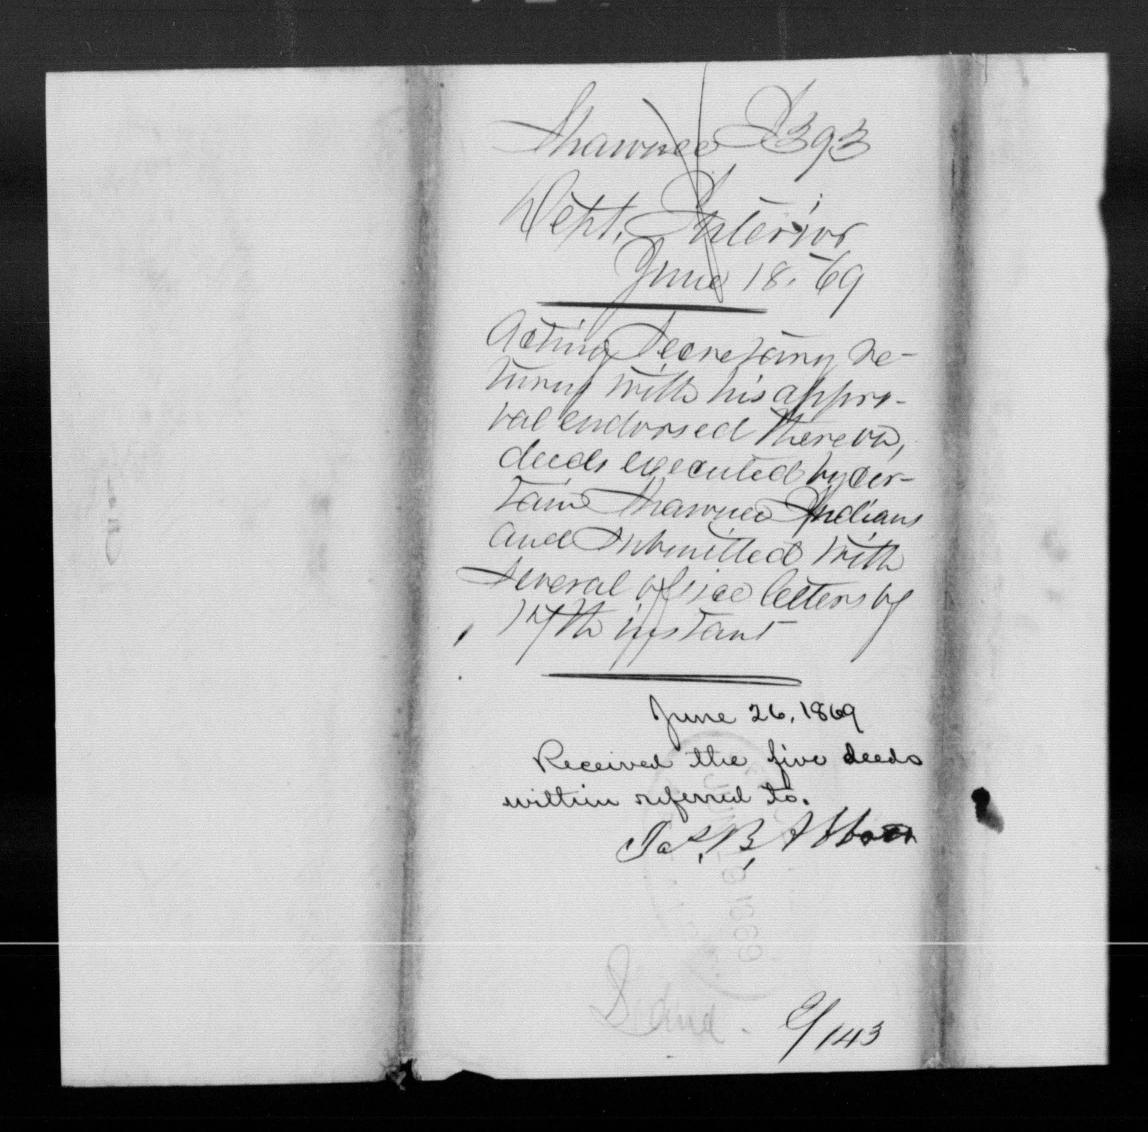 Shawnee I 393
Dept. Interior
June 18. 69
Acting Secretary re-
turns with his appro-
val endorsed thereon,
deeds executed by cer-
tain Shawnee Indians
and submitted with
several office letters of
17th instant
June 26, 1869
Received the five deeds
within referred to.
Jas. B. Abbott
1869
/143